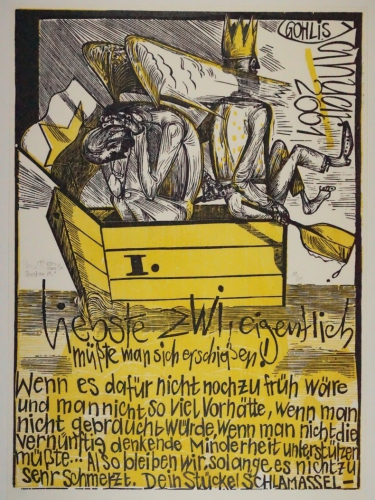 GOHLIS
Januar
2001
I.
Liebste ZWI, eigentlich
müßte man sich erschießen!)
Wenn es dafür nicht noch zu früh wäre
und man nicht so viel Vorhätte, wenn man
nicht gebraucht würde, wenn man nicht die
vernünftig denkende Minderheit unterstützen
müßte... Also bleiben wir, solange es nicht zu
sehr schmerzt. Dein Stückel SCHLAMASSEL-